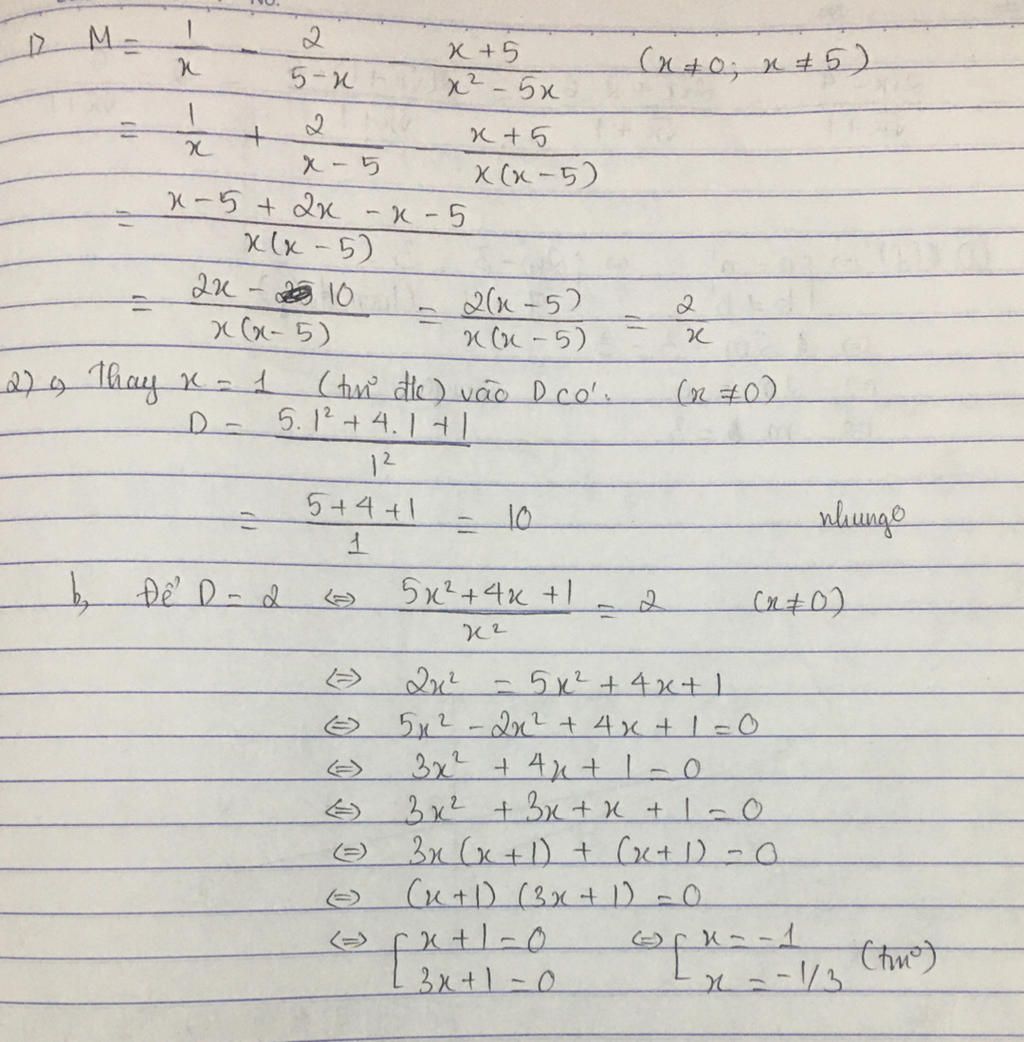 1) M = 1/x - 2/(5-x) - (x+5)/(x² - 5x) (x≠0; x≠5)
= 1/x + 2/(x-5) - (x+5)/(x(x-5))
= (x-5 + 2x - x - 5)/(x(x-5))
= (2x - 10)/(x(x-5)) = 2(x-5)/(x(x-5)) = 2/x
2) a, Thay x = 1 (tm đk) vào D có: (x≠0)
D = (5.1² + 4.1 + 1)/1²
= (5+4+1)/1 = 10 nhung
b, Để D = 2 ⇔ (5x² + 4x + 1)/x² = 2 (x≠0)
⇔ 2x² = 5x² + 4x + 1
⇔ 5x² - 2x² + 4x + 1 = 0
⇔ 3x² + 4x + 1 = 0
⇔ 3x² + 3x + x + 1 = 0
⇔ 3x(x+1) + (x+1) = 0
⇔ (x+1)(3x+1) = 0
⇔ [ x+1 = 0 ⇔ [ x = -1
3x+1 = 0 x = -1/3 (tm)